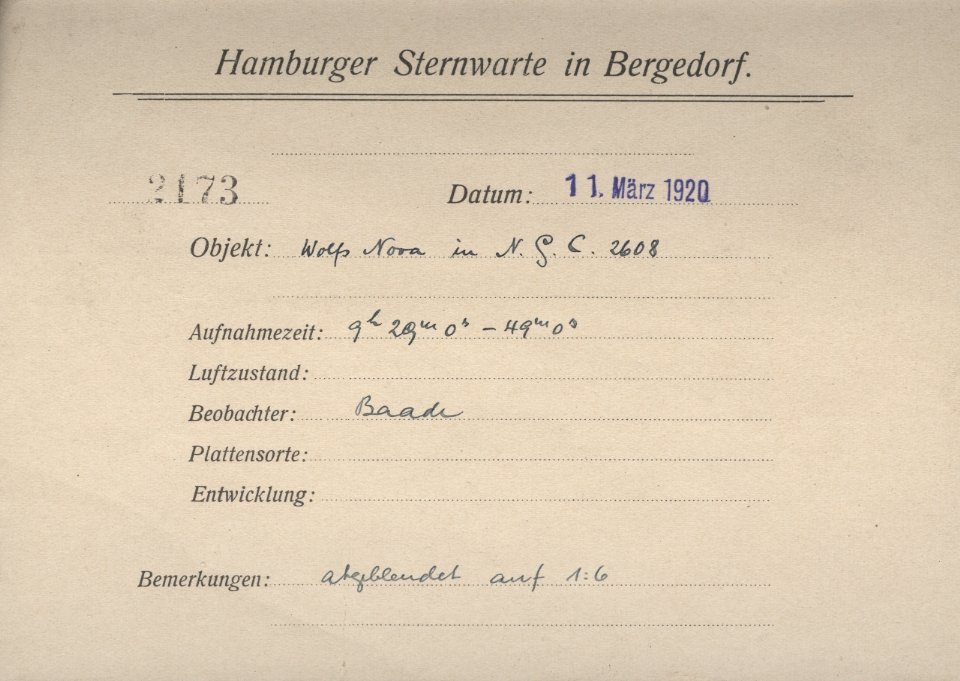 Hamburger Sternwarte in Bergedorf.
2173 Datum: 11. März 1920
Objekt: Wolfs Nova in N. G. C. 2608
Aufnahmezeit: 9h 29m 0s – 49m 0s
Luftzustand:
Beobachter: Baade
Plattensorte:
Entwicklung:
Bemerkungen: abgeblendet auf 1:6